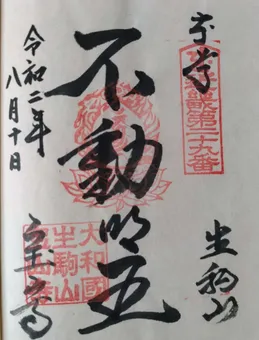 奉拝
畿第二十九番
生駒山
不動明王
宝山寺
大和國
生駒山
寳山寺
令和二年
八月十日